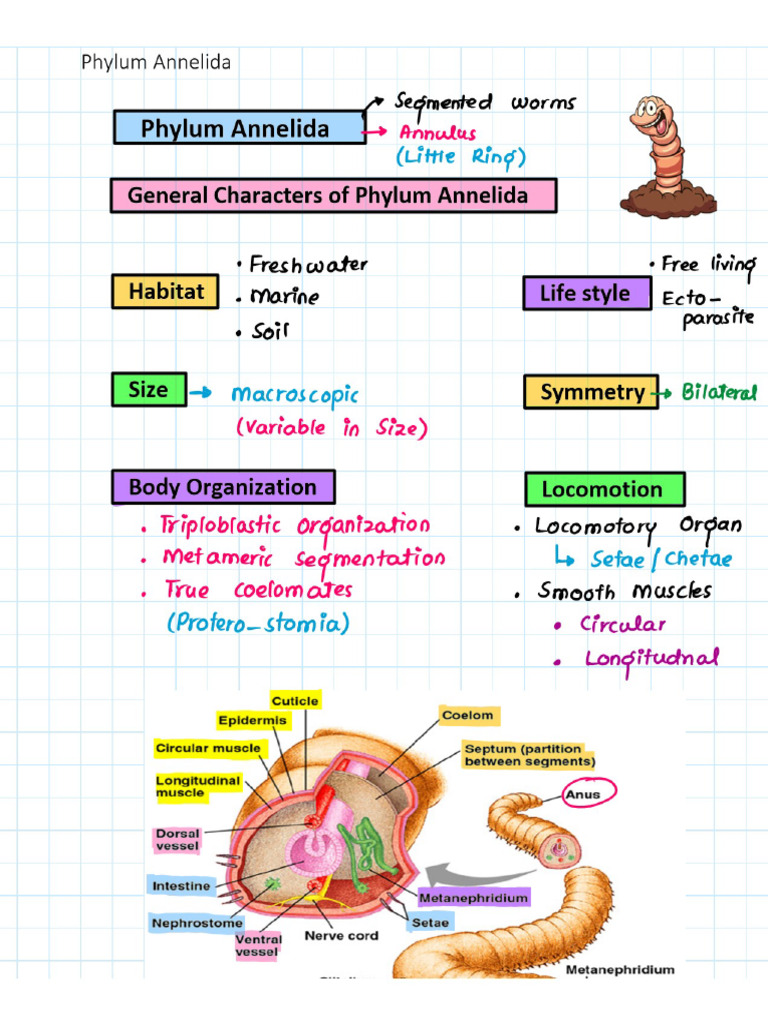 Phylum Annelida
Phylum Annelida
Segmented worms
Annulus
(Little Ring)
General Characters of Phylum Annelida
Habitat
• Freshwater
• Marine
• Soil
Life style
• Free living
Ecto-
parasite
Size
Macroscopic
(Variable in Size)
Symmetry
Bilateral
Body Organization
• Triploblastic organization
• Metameric segmentation
• True coelomates
(Protero-stomia)
Locomotion
• Locomotory Organ
Setae / Chetae
• Smooth Muscles
• Circular
• Longitudnal
Cuticle
Epidermis
Circular muscle
Longitudinal
muscle
Dorsal
vessel
Intestine
Nephrostome
Ventral
vessel
Nerve cord
Coelom
Septum (partition
between segments)
Anus
Metanephridium
Setae
Metanephridium